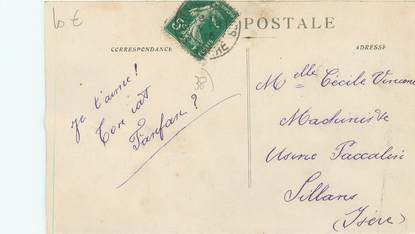 10 €
POSTALE
CORRESPONDANCE
ADRESSE
30
Je t'aime!
Ton
Fanfan?
Melle Cécile Vincent
Machiniste
Usine Faccalin
Sillans
(Isère)